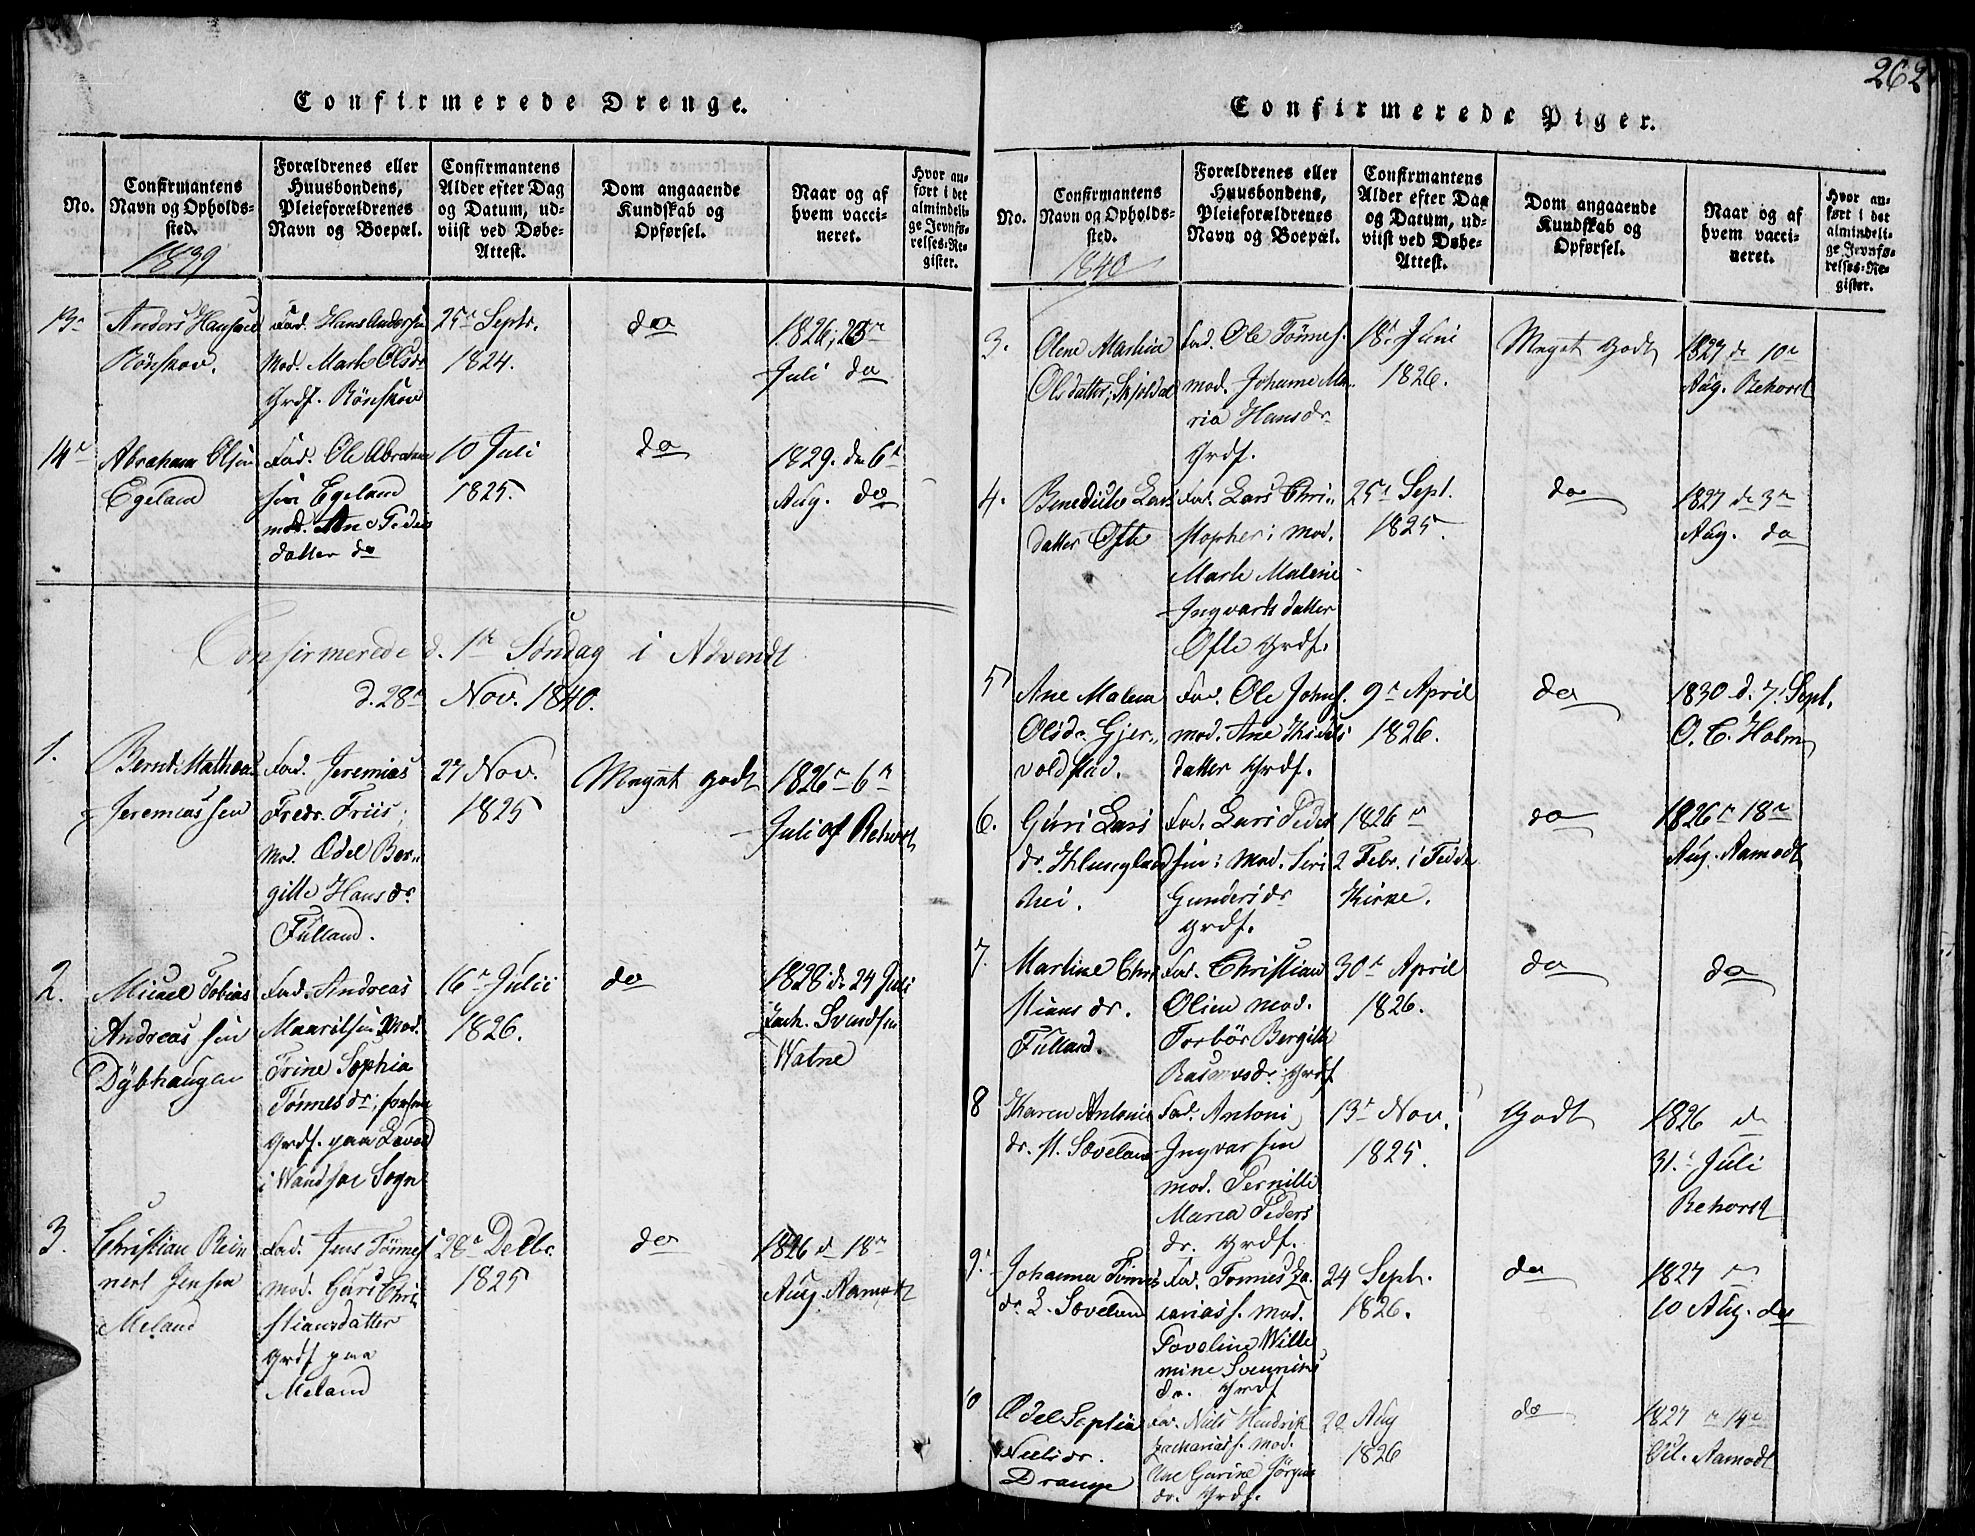 262
Confirmerede Drenge.
No.
Confirmantens
Navn og Opholds-
sted.
1839
Forældrenes eller
Huusbondens,
Pleieforældrenes
Navn og Boepæl.
Confirmantens
Alder efter Dag
og Datum, ud-
viist ved Døbe-
Attest.
Dom angaaende
Kundskab og
Opførsel.
Naar og af
hvem vacci-
neret.
Hvor an-
ført i det
almindeli-
ge Jevnfø-
relses-Re-
gister.
13
Anders Hansen
Rönskov.
Fad. Hans Andersen
Mod. Marte Olsdr
Grdf. Rönskov
25 Septr.
1824.
do
1826,
Juli do
14
Abraham Olsen
Egeland
Fad. Ole Abraham
sen Egeland
mod. Ane Peders
datter do
10 Juli
1825.
do
1829. den 6
Aug. do
Confirmerede d. 1ste Søndag i Advendt
d. 28 Nov. 1840.
1.
Bernt Mathias
Jeremiassen
Fad. Jeremias
Fredr. Friis;
Mod. Ædel Ber-
gitte Hansdr
Fülland.
27 Nov.
1825
Meget godt
1826 6
Juli af Rehorst
2.
Micael Tobias
Andreassen
Dybhaugen
Fad. Andreas
Mauritsen Mod.
Trine Sophia
Tönnesdr;
Grdf. paa
i Wandsøe Sogn
16 Julii
1826.
do
1828 d. 24 Juli
Zach. Svendsen
Watne
3.
Christian Rein
nert Jensen
Meland
Fad. Jens Tönnes
mod. Guri Chri
stiansdatter
Grdf paa
Meland
28 Decbr.
1825
do
1826 d 18
Aug. Aamodt
Confirmerede Piger.
No.
Confirmantens
Navn og Opholds-
sted.
1840
Forældrenes eller
Huusbondens,
Pleieforældrenes
Navn og Boepæl.
Confirmantens
Alder efter Dag
og Datum, ud-
viist ved Døbe-
Attest.
Dom angaaende
Kundskab og
Opførsel.
Naar og af
hvem vacci-
neret.
Hvor an-
ført i det
almindeli-
ge Jevnfø-
relses-Re-
gister.
3.
Olene Martine
Olsdatter,
Fad. Ole Tönnes.
mod. Johanne Ma-
ria Hansdr
Grdf.
18 Juni
1826.
Meget godt
1827 d 10
Aug. Rehorst
4.
Benedicte Lars
datter Ofte
Fad. Lars Chri-
stophers; mod.
Marte Malene
Ingvartsdatter
Ofte Grdf.
25 Sept.
1825
do
1827 d 3
Aug. do
5
Ane Malene
Olsdr. Gjer-
voldstad.
Fad. Ole Johns.
mod. Ane
datter Grdf.
9 April
1826.
do
1830 d. 7 Sept.
O. C. Holm
6.
Guri Lars
dr.
hei.
Fad. Lars Peder
sen; Mod. Siri
Gundersdr
Grdf.
1826
2 Febr. i
Kirke.
do
1826 18
Aug. Aamodt
7.
Martine Chri
stiansdr.
Fülland.
Fad. Christian
Olsen mod.
Torbör Bergitte
Rasmusdr. Grdf
30 April
1826.
do
do
8
Karen Antonie
dr. st. Soveland
Fad. Antoni
Ingvarsen
mod. Pernille
Maria Peders
dr. Grdf.
13 Nov.
1825.
Godt
1826 d
31 Juli
Rehorst
9.
Johanna Tönnes
dr. L. Soveland
Fad. Tonnes Za-
carias s. mod.
Poveline Wille
mine Svennings
dr. Grdf
24 Sept.
1826.
do
1827
10 Aug. do
10
Ædel Sophia
Nielsdr.
Drange
Fad. Niels Hendrik
Zacharias s. mod.
Ane Gurine Jörgens
dr. Grdf.
20 Aug
1826
do
1827 14
Oct. Aamodt